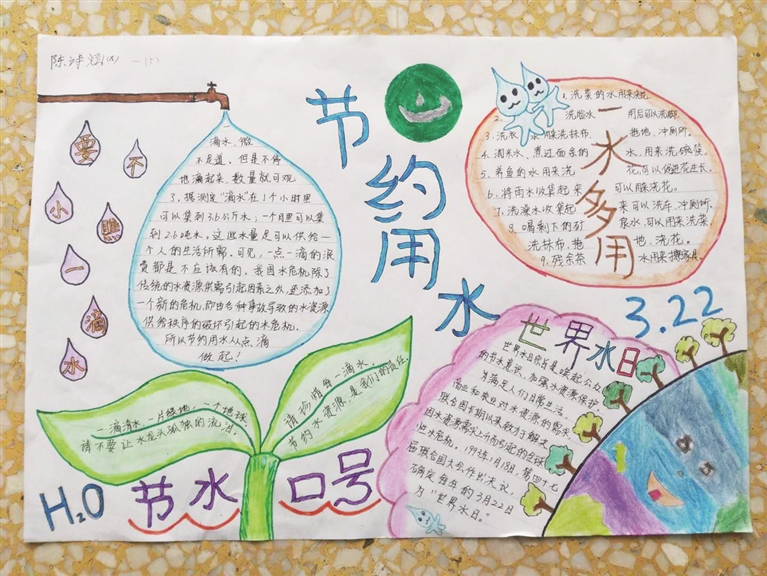 陈诗涵
一(5)
节约用水
不要小瞧一滴水
一滴水，微
不足道，但是不停
地滴起来，数量就可观
了，据测定"滴水"在1个小时里
可以集到3.6公斤水；一个月里可以集
到2.6吨水，这些水量足可以供给一
个人的生活所需。可见，一点一滴的浪
费都是不应该有的。我国水危机除了
传统的水资源供需引起因素之外，还添加了
一个新的危机，即由各种事故导致的水资源
供给秩序的破坏引起的水危机。
所以节约用水从点滴
做起！
一水多用
1、洗菜的水用来浇花
2、洗脸水 用后可以洗脚
3、洗衣 水 洗抹布、拖地、冲厕所。
4、淘米水、煮过面条的 水，用来洗碗筷
5、养鱼的水用来浇 花，可以促进花生长
6、将雨水收集起来 可以用来浇花。
7、洗澡水收集起 来可以洗车、冲厕所
8、喝剩下的矿 泉水，可以用来洗菜、
洗抹布、拖 地、浇花。
9、残余茶 水用来擦家具
3.22
世界水日
世界水日宗旨是唤起公众
的节水意识，加强水资源保护
为满足人们日常生活、
商业和农业对水资源的需求，
联合国长期以来致力于解决
因水资源需求上升而引起的全球
性水危机。1993年1月18日，第四十七
届联合国大会作出决议，
确定每年的3月22日
为"世界水日。"
一滴清水，一片绿地，一个地球。
请不要让水龙头孤独的流泪。
请珍惜每一滴水。
节约水资源，是我们的责任。
H₂O
节水口号